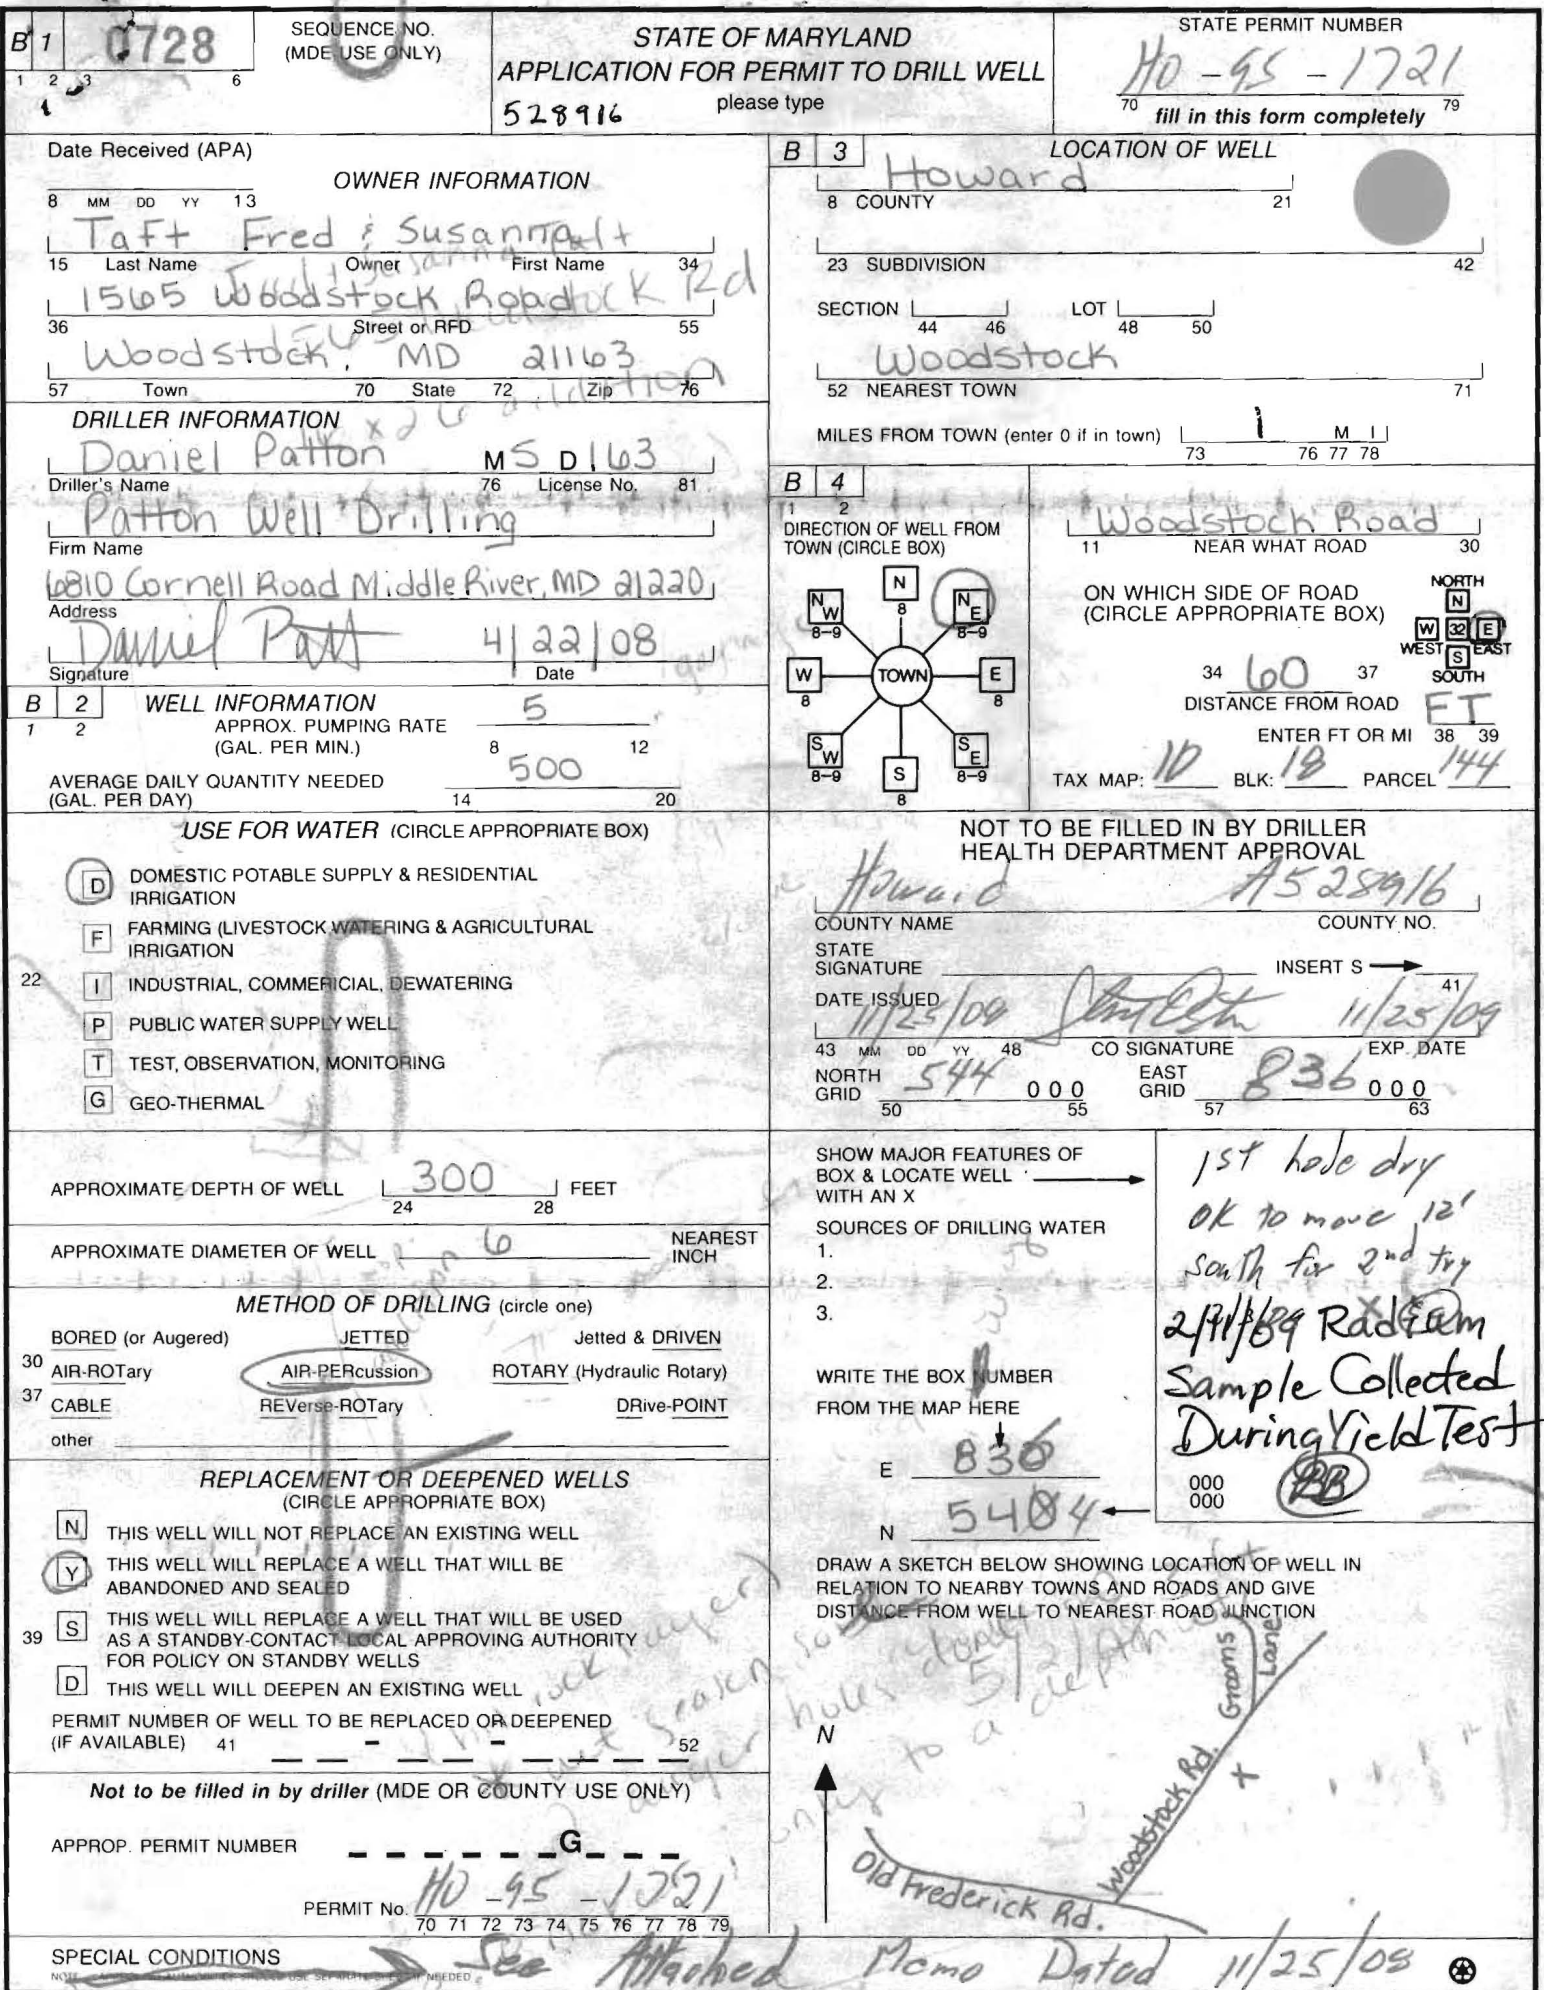 B 1 0728 SEQUENCE NO. (MDE USE ONLY)
1 2 3 6
STATE OF MARYLAND
APPLICATION FOR PERMIT TO DRILL WELL
528916 please type
STATE PERMIT NUMBER
HO-95-1721
70 79
fill in this form completely
Date Received (APA)
8 MM DD YY 13
OWNER INFORMATION
Taft Fred & Susanna
15 Last Name Owner First Name 34
1565 Woodstock Road
36 Street or RFD 55
Woodstock, MD 21163
57 Town 70 State 72 Zip 76
DRILLER INFORMATION
Daniel Patton MSD163
Driller's Name 76 License No. 81
Patton Well Drilling
Firm Name
6810 Cornell Road Middle River, MD 21220
Address
Daniel Patt 4/22/08
Signature Date
B 2 WELL INFORMATION
1 2
APPROX. PUMPING RATE 5
(GAL. PER MIN.) 8 12
AVERAGE DAILY QUANTITY NEEDED 500
(GAL. PER DAY) 14 20
USE FOR WATER (CIRCLE APPROPRIATE BOX)
D DOMESTIC POTABLE SUPPLY & RESIDENTIAL
IRRIGATION
F FARMING (LIVESTOCK WATERING & AGRICULTURAL
IRRIGATION
22 I INDUSTRIAL, COMMERICIAL, DEWATERING
P PUBLIC WATER SUPPLY WELL
T TEST, OBSERVATION, MONITORING
G GEO-THERMAL
APPROXIMATE DEPTH OF WELL 300 FEET
24 28
APPROXIMATE DIAMETER OF WELL 6 NEAREST
INCH
METHOD OF DRILLING (circle one)
BORED (or Augered) JETTED Jetted & DRIVEN
30 AIR-ROTary AIR-PERcussion ROTARY (Hydraulic Rotary)
37 CABLE REVerse-ROTary DRive-POINT
other
REPLACEMENT OR DEEPENED WELLS
(CIRCLE APPROPRIATE BOX)
N THIS WELL WILL NOT REPLACE AN EXISTING WELL
Y THIS WELL WILL REPLACE A WELL THAT WILL BE
ABANDONED AND SEALED
39 S THIS WELL WILL REPLACE A WELL THAT WILL BE USED
AS A STANDBY-CONTACT LOCAL APPROVING AUTHORITY
FOR POLICY ON STANDBY WELLS
D THIS WELL WILL DEEPEN AN EXISTING WELL
PERMIT NUMBER OF WELL TO BE REPLACED OR DEEPENED
(IF AVAILABLE) 41 - - 52
Not to be filled in by driller (MDE OR COUNTY USE ONLY)
APPROP. PERMIT NUMBER G
PERMIT No. HO-95-1721
70 71 72 73 74 75 76 77 78 79
B 3 LOCATION OF WELL
Howard
8 COUNTY 21
23 SUBDIVISION 42
SECTION LOT
44 46 48 50
Woodstock
52 NEAREST TOWN 71
MILES FROM TOWN (enter 0 if in town) 1 M I
73 76 77 78
B 4
1 2
DIRECTION OF WELL FROM
TOWN (CIRCLE BOX)
N 8
NW 8-9
NE 8-9
W 8
TOWN
E 8
SW 8-9
S 8
SE 8-9
Woodstock Road
11 NEAR WHAT ROAD 30
ON WHICH SIDE OF ROAD
(CIRCLE APPROPRIATE BOX)
NORTH
N
W 32 E
WEST S EAST
SOUTH
34 60 37
DISTANCE FROM ROAD FT
ENTER FT OR MI 38 39
TAX MAP: 10 BLK: 18 PARCEL 144
NOT TO BE FILLED IN BY DRILLER
HEALTH DEPARTMENT APPROVAL
Howard A528916
COUNTY NAME COUNTY NO.
STATE
SIGNATURE INSERT S
41
DATE ISSUED
11/25/08 11/25/09
43 MM DD YY 48 CO SIGNATURE EXP. DATE
NORTH GRID 544 000 EAST GRID 836 000
50 55 57 63
SHOW MAJOR FEATURES OF
BOX & LOCATE WELL
WITH AN X
SOURCES OF DRILLING WATER
1.
2.
3.
WRITE THE BOX NUMBER
FROM THE MAP HERE
E 836
N 5404
1st hole dry
OK to move 12'
south for 2nd try
Radium
Sample Collected
During Yield Test
000
000 BB
DRAW A SKETCH BELOW SHOWING LOCATION OF WELL IN
RELATION TO NEARBY TOWNS AND ROADS AND GIVE
DISTANCE FROM WELL TO NEAREST ROAD JUNCTION
N
Grams Lane
Woodstock Rd.
Old Frederick Rd.
SPECIAL CONDITIONS See Attached Memo Dated 11/25/08